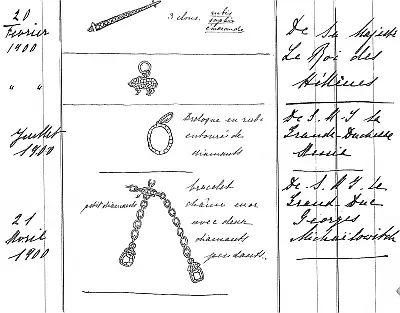 20
Février
1900
3 clous. rubis
saphir
émeraude
De Sa Majesté
Le Roi des
Hélènes
" "
Juillet
1900
Breloque en rubis
entouré de
diamants
De S. M. I. la
Grande-Duchesse
21
Avril
1900
petit diamants
bracelet
chaîne en or
avec deux
diamants
pendants.
De S. A. I. le
Grand-Duc
Georges
Michaïlowitch